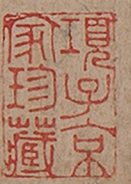 項子京
家珍藏